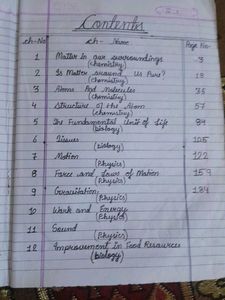 Contents
Ch-No ch- Name Page No-
1 Matter in our surroundings 3
(chemistry)
2 Is Matter around Us Pure? 18
(chemistry)
3 Atoms And Molecules 35
(chemistry)
4 Structure of the Atom 57
(chemistry)
5 The Fundamental Unit of Life 84
(biology)
6 Tissues 105
(biology)
7 Motion 122
(Physics)
8 Force and Laws of Motion 159
(Physics)
9 Gravitation 184
(Physics)
10 Work and Energy
(Physics)
11 Sound
(Physics)
12 Improvement In Food Resources
(biology)